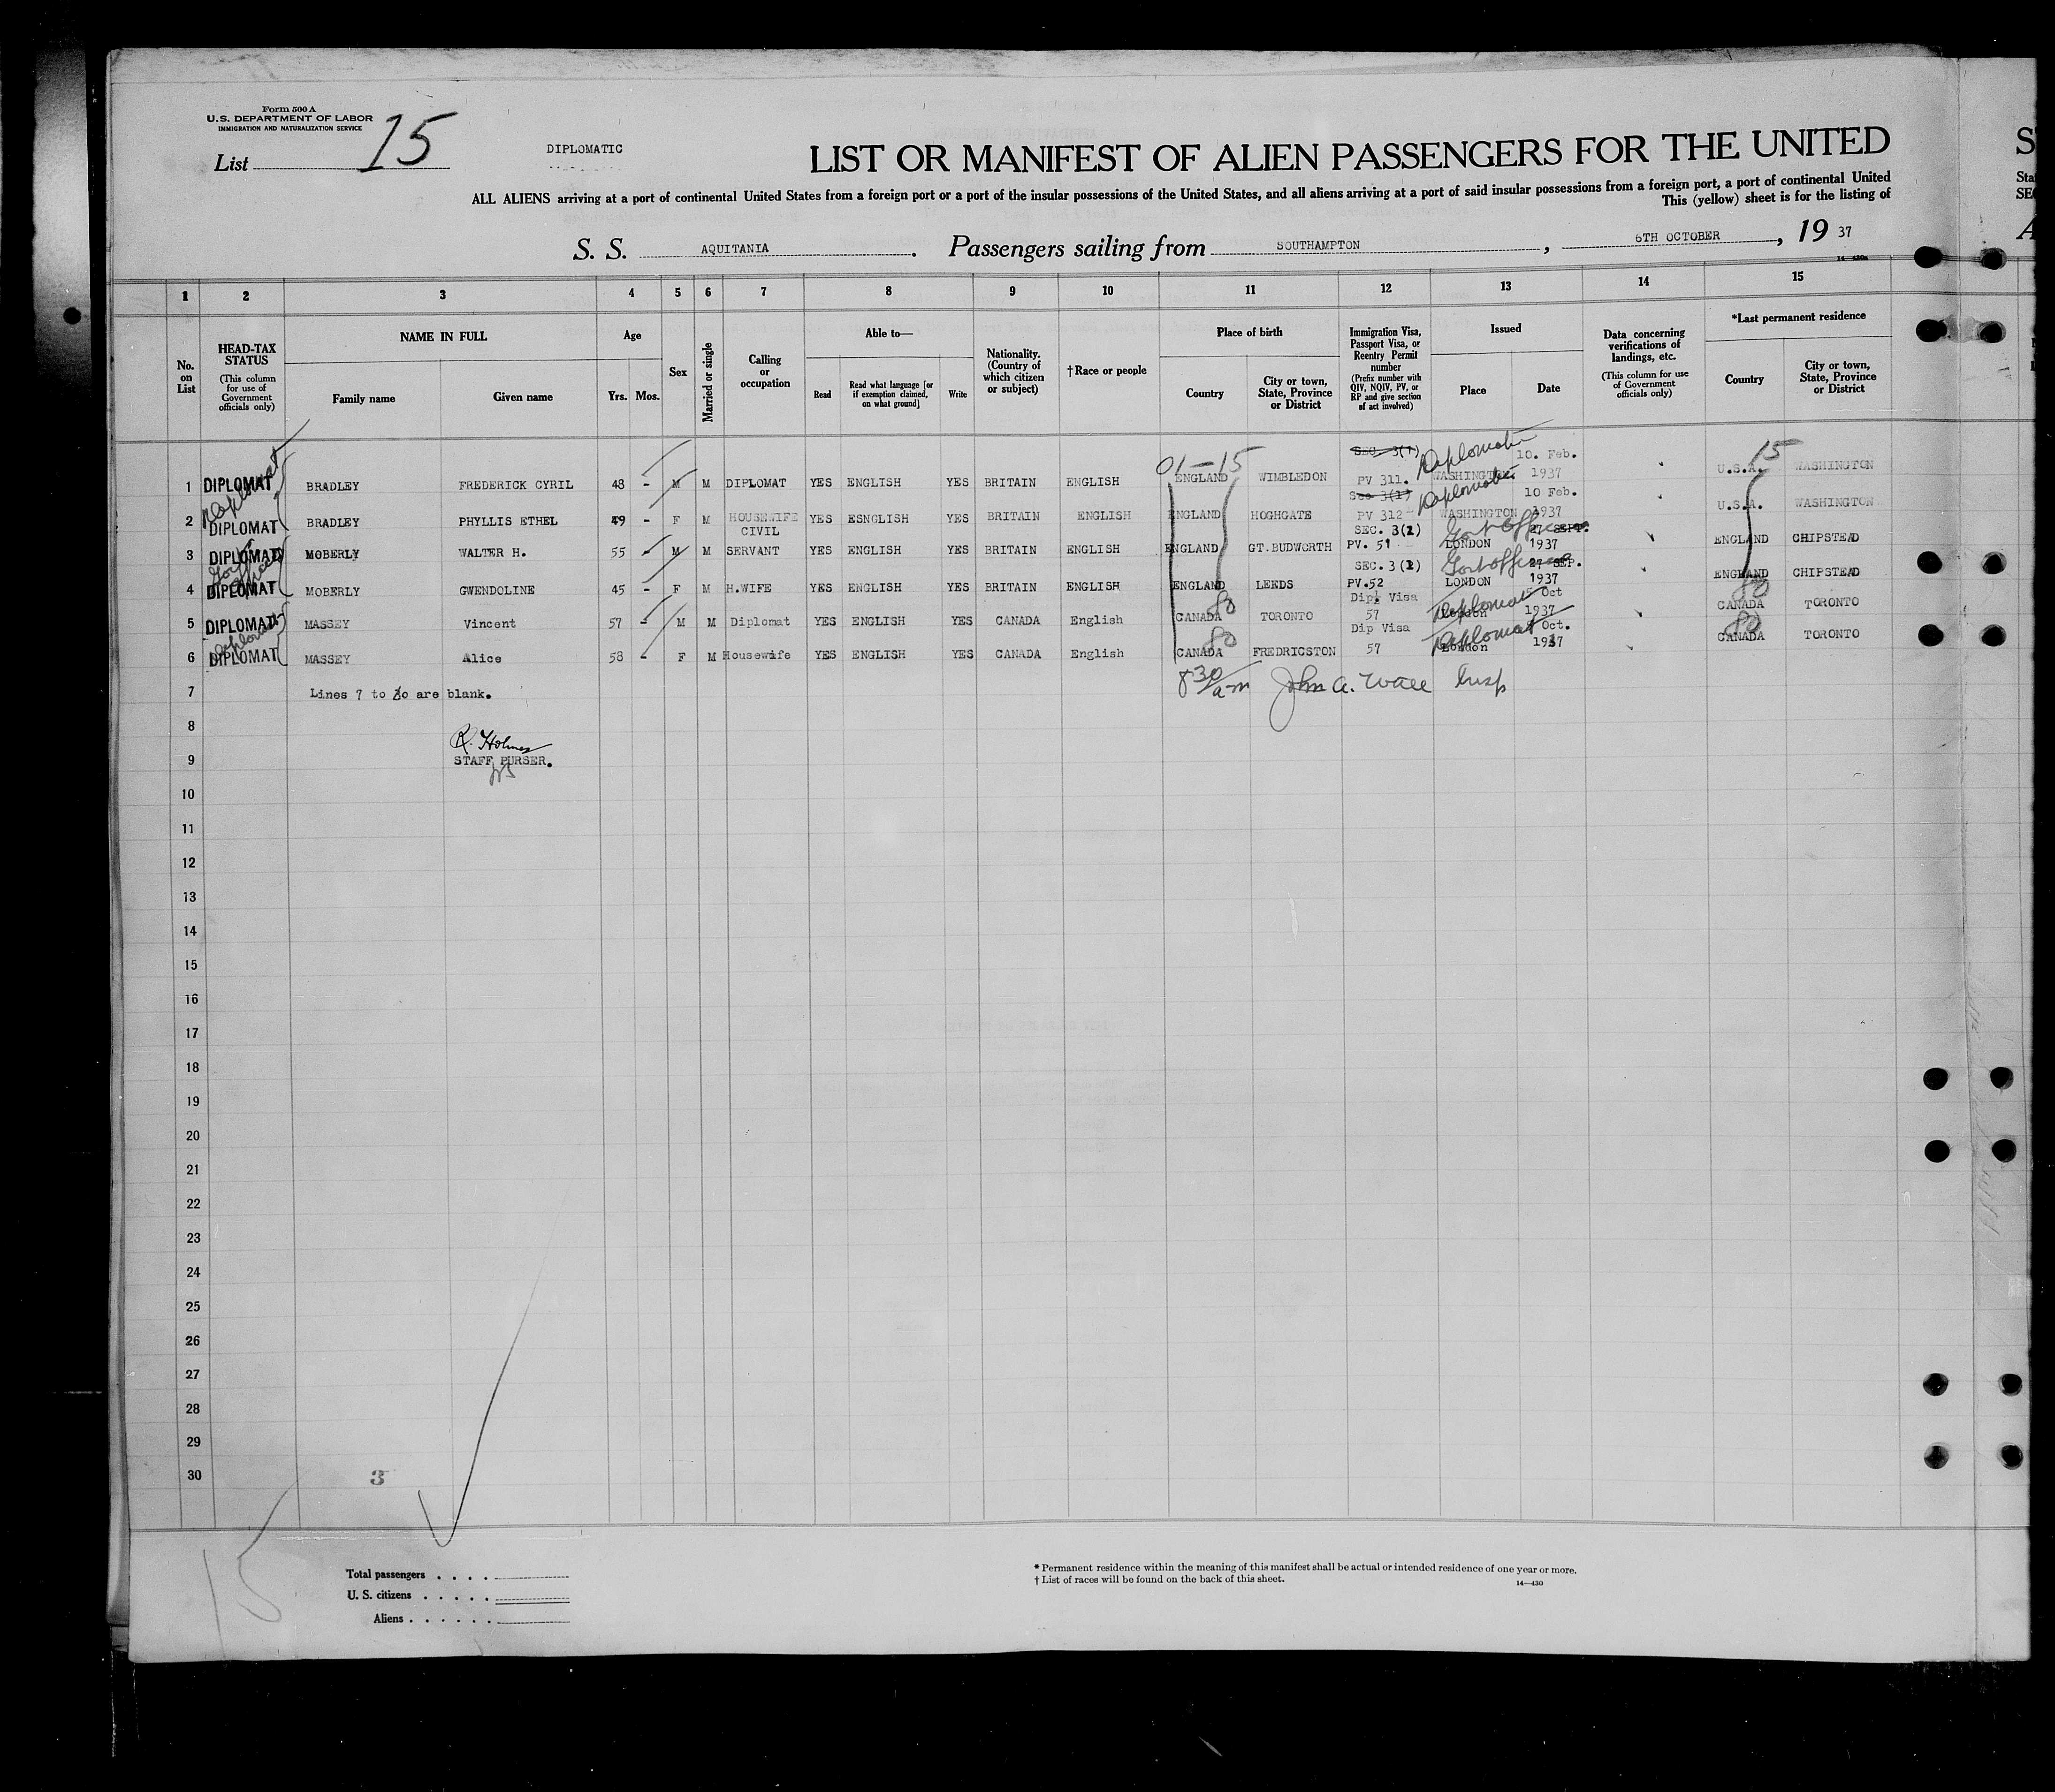 Form 500 A
U.S. DEPARTMENT OF LABOR
IMMIGRATION AND NATURALIZATION SERVICE
List 15
DIPLOMATIC
LIST OR MANIFEST OF ALIEN PASSENGERS FOR THE UNITED
ALL ALIENS arriving at a port of continental United States from a foreign port or a port of the insular possessions of the United States, and all aliens arriving at a port of said insular possessions from a foreign port, a port of continental United
This (yellow) sheet is for the listing of
S. S. AQUITANIA. Passengers sailing from SOUTHAMPTON, 6TH OCTOBER, 19 37
14—430a
1 2 3 4 5 6 7 8 9 10 11 12 13 14 15
No. on List
HEAD-TAX STATUS (This column for use of Government officials only)
NAME IN FULL
Family name
Given name
Age
Yrs. Mos.
Sex
Married or single
Calling or occupation
Able to—
Read
Read what language [or if exemption claimed, on what ground]
Write
Nationality. (Country of which citizen or subject)
†Race or people
Place of birth
Country
City or town, State, Province or District
Immigration Visa, Passport Visa, or Reentry Permit number (Prefix number with QIV, NQIV, PV, or RP and give section of act involved)
Issued
Place
Date
Data concerning verifications of landings, etc. (This column for use of Government officials only)
*Last permanent residence
Country
City or town, State, Province or District
01-15 SEC 3(1) Diplomatic 10. Feb. 15
1 DIPLOMAT BRADLEY FREDERICK CYRIL 48 - M M DIPLOMAT YES ENGLISH YES BRITAIN ENGLISH ENGLAND WIMBLEDON PV 311. WASHINGTON 1937 U.S.A. WASHINGTON
Sec 3(1) Diplomatic 10 Feb.
2 DIPLOMAT BRADLEY PHYLLIS ETHEL 49 - F M HOUSEWIFE YES ESNGLISH YES BRITAIN ENGLISH ENGLAND HOGHGATE PV 312 WASHINGTON 1937 U.S.A. WASHINGTON
CIVIL SEC. 3(1) SEPT.
3 DIPLOMAT MOBERLY WALTER H. 55 - M M SERVANT YES ENGLISH YES BRITAIN ENGLISH ENGLAND GT.BUDWORTH PV. 51 LONDON 1937 ENGLAND CHIPSTEAD
SEC. 3(1) SEP.
4 DIPLOMAT MOBERLY GWENDOLINE 45 - F M H.WIFE YES ENGLISH YES BRITAIN ENGLISH ENGLAND LEEDS PV.52 LONDON 1937 ENGLAND CHIPSTEAD
80 Dip. Visa Diplomat 5 Oct 80
5 DIPLOMAT MASSEY Vincent 57 - M M Diplomat YES ENGLISH YES CANADA English CANADA TORONTO 57 London 1937 CANADA TORONTO
80 Dip Visa Diplomat Oct. 80
6 DIPLOMAT MASSEY Alice 58 - F M Housewife YES ENGLISH YES CANADA English CANADA FREDRICSTON 57 London 1937 CANADA TORONTO
7 Lines 7 to 30 are blank. 8 30 am John A. Wall Insp
8
R. Holmes
9 STAFF PURSER.
10
11
12
13
14
15
16
17
18
19
20
21
22
23
24
25
26
27
28
29
30 3
15
Total passengers . . . .
U. S. citizens . . . . .
Aliens . . . . . .
* Permanent residence within the meaning of this manifest shall be actual or intended residence of one year or more.
† List of races will be found on the back of this sheet.
14—430